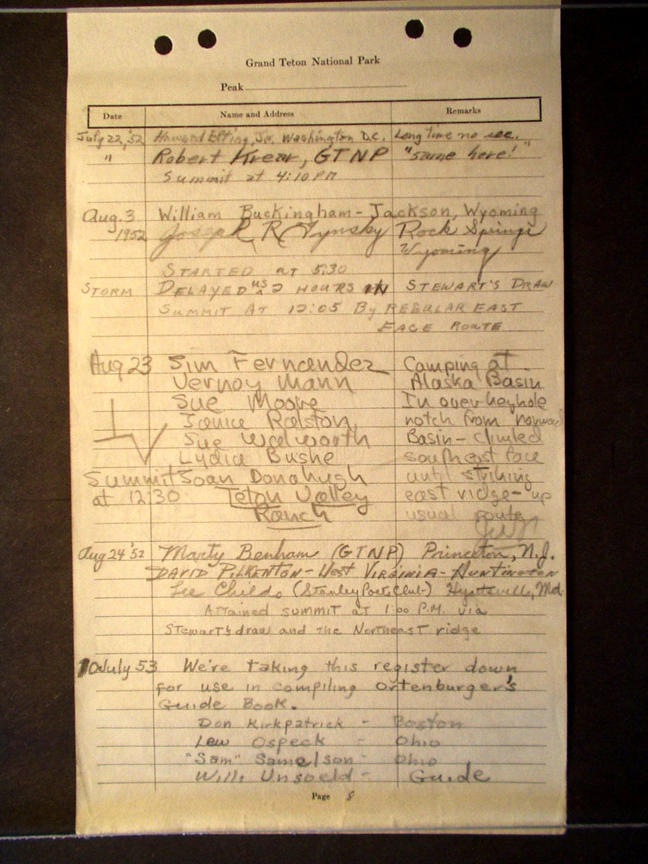 Grand Teton National Park
Peak
Date Name and Address Remarks
July 22, '52 Howard Elting, Jr. Washington D.C. Long time no see.
" Robert Krear, GTNP "same here!"
Summit at 4:10 PM
Aug. 3 William Buckingham - Jackson, Wyoming
1952 Joseph R. Tynsky Rock Springs
Wyoming
STARTED AT 5:30
STORM DELAYED US 2 HOURS IN STEWART'S DRAW
SUMMIT AT 12:05 By REGULAR EAST
FACE ROUTE
Aug 23 Jim Fernandez Camping at
Vernoy Mann Alaska Basin
Sue Moore In over keyhole
Janice Ralston notch from
Sue Walworth Basin - climbed
Lydia Bushe southeast face
Summit Joan Donahugh until striking
at 12:30 Teton Valley east ridge - up
Ranch usual route
Aug 24 '52 Marty Benham (GTNP) Princeton, N.J.
DAVID PILKENTON - West VIRGINIA - HUNTINGTON
Lee Childs Hyattsville, Md.
Attained summit at 1:00 P.M. via
Stewart's draw and the Northeast ridge
10 July 53 We're taking this register down
for use in compiling Ortenburger's
Guide Book.
Don Kirkpatrick - Boston
Lew Ospeck - Ohio
"Sam" Samelson - Ohio
Willi Unsoeld - Guide
Page 8